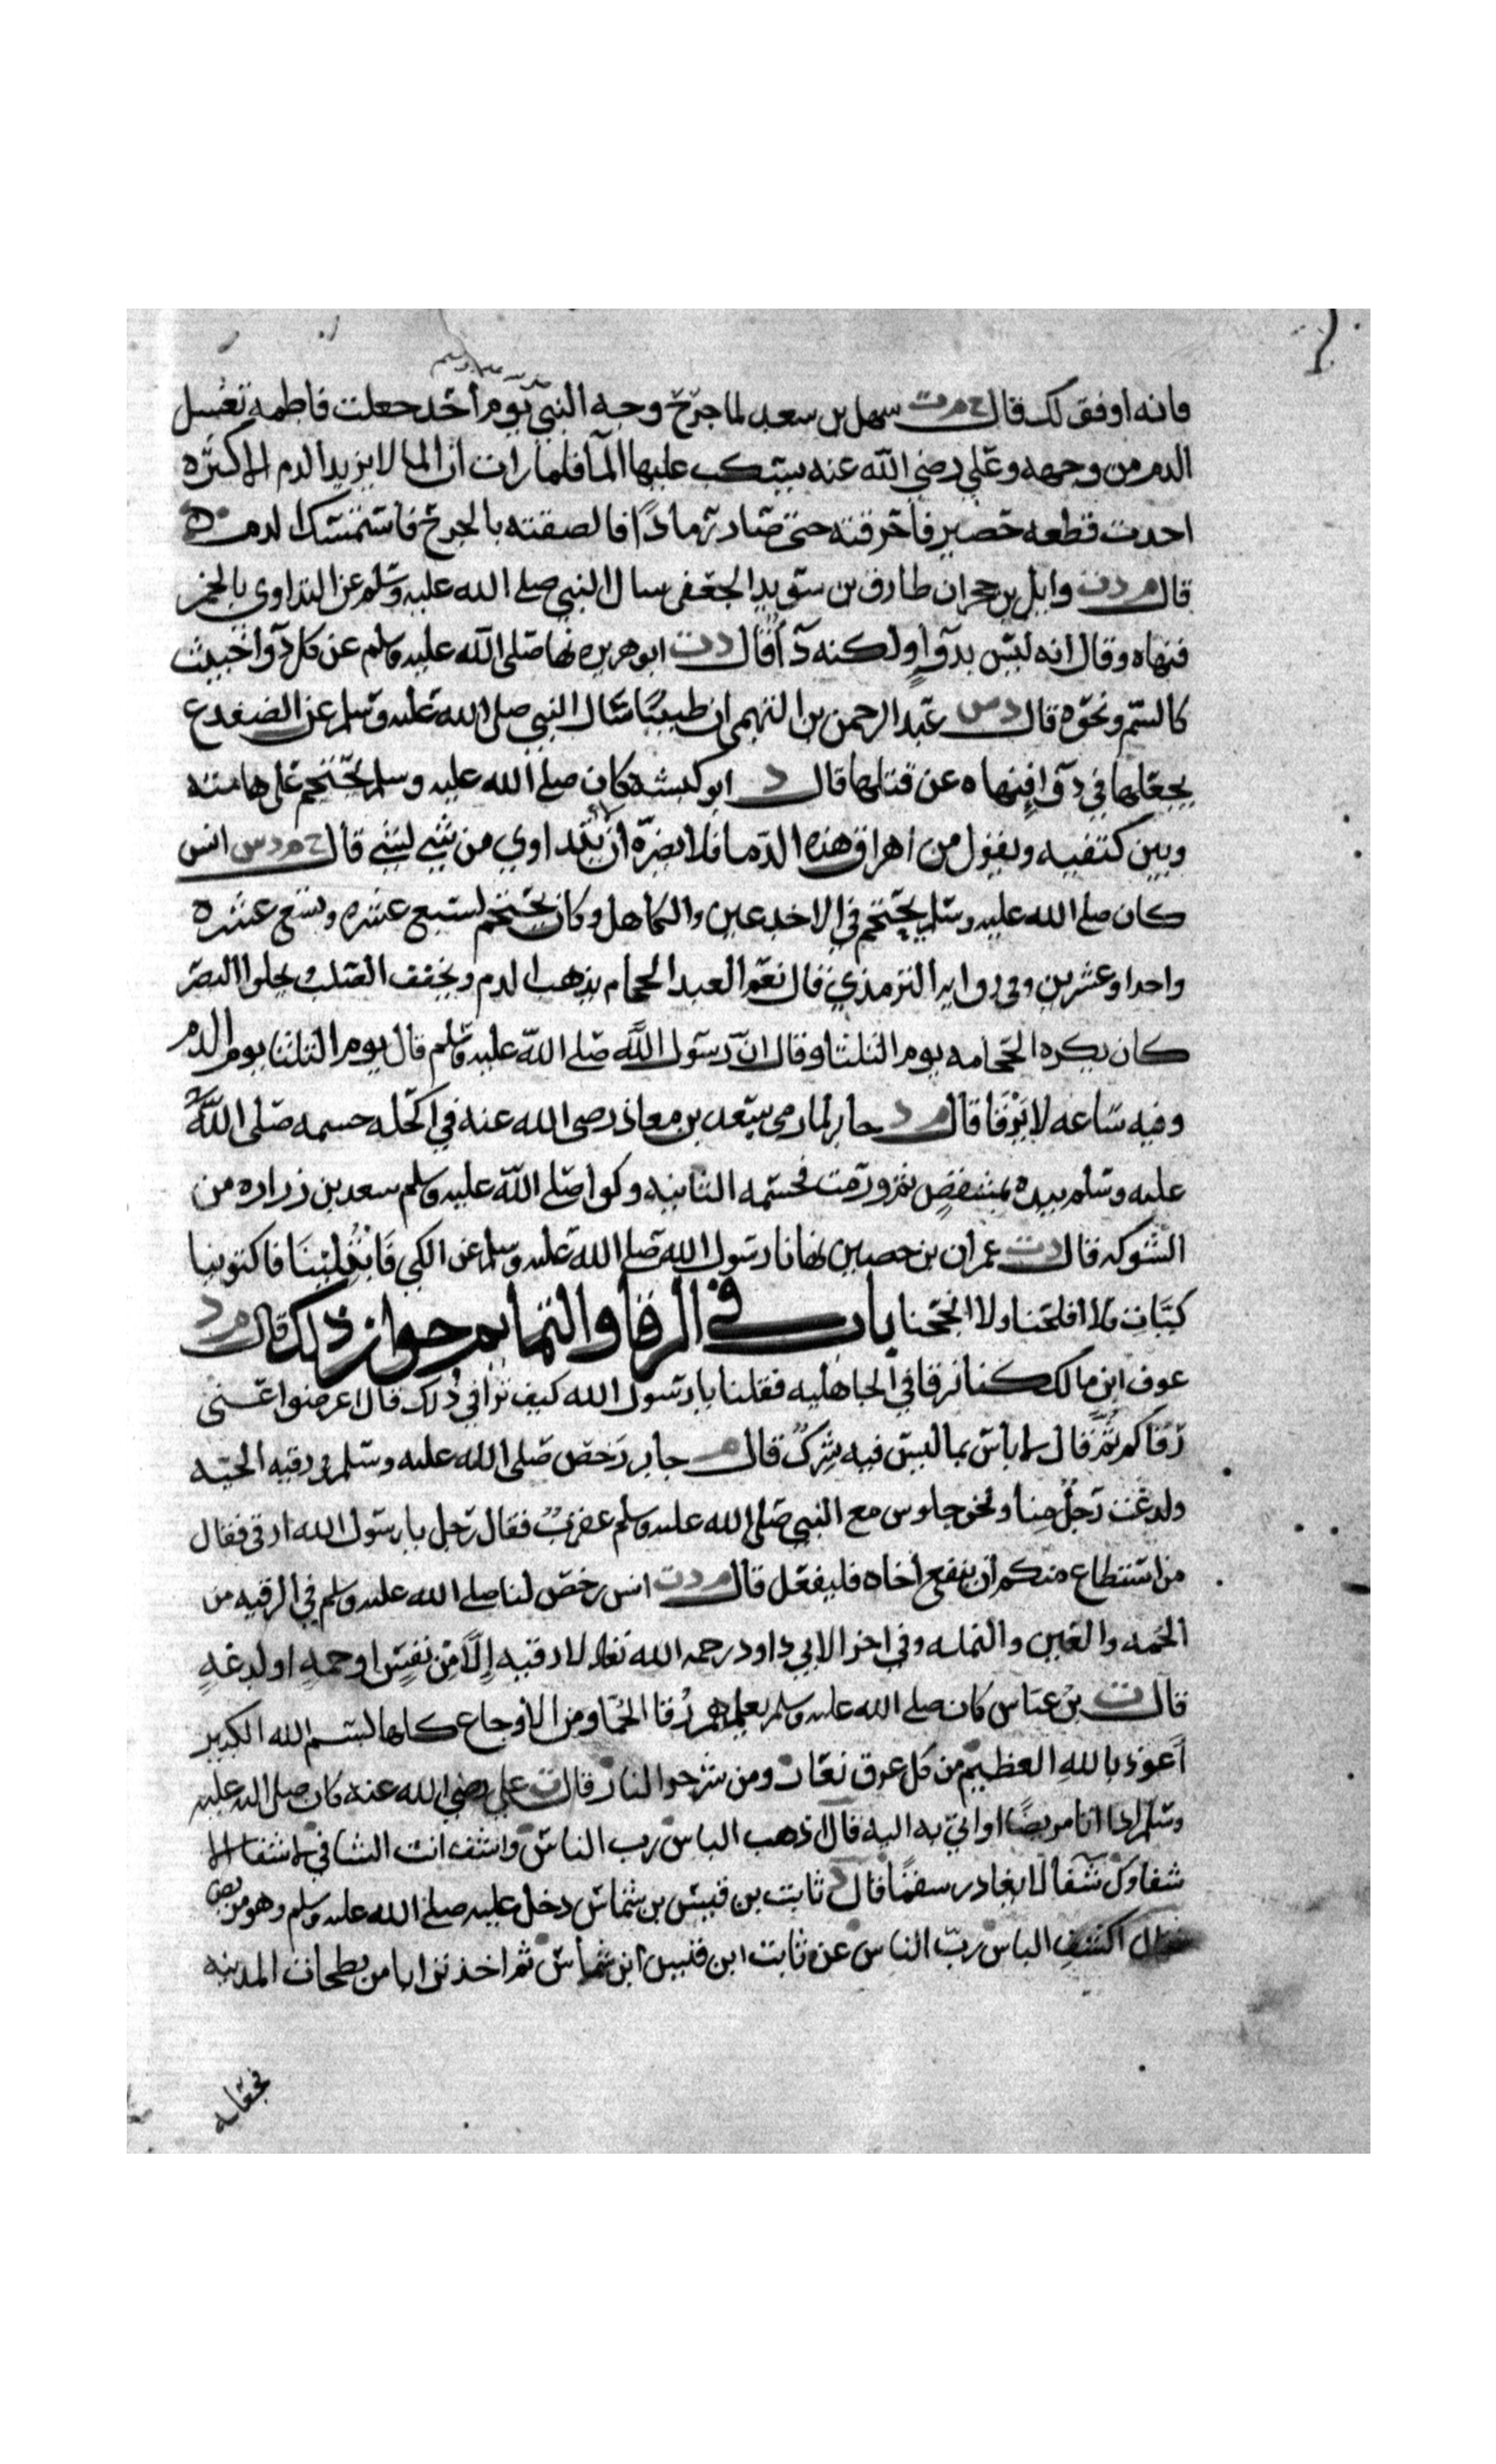 صلى الله عليه وسلم
فانه اوفق لك قال خ م ت سهل بن سعد لما جرح وجه النبي يوم أحد جعلت فاطمة تغسل
الدم من وجهه وعلي رضي الله عنه يسكب عليها الما فلما رات ان الما لا يزيد الدم الا كثره
اخذت قطعه حصير فاحرقته حتى صار رمادًا فالصقته بالجرح فاستمسك الدم
قال م د ت وايل بن حجر ان طارق بن سويد الجعفي سال النبي صلى الله عليه وسلم عن التداوي بالخمر
فنهاه وقال انه ليس بدوآء ولكنه دآء قال د ت ابو هريره نها صلى الله عليه وسلم عن كل دوآء خبيث
كالسم ونحوه قال د س عبد الرحمن بن التيمي ان طبيبًا سال النبي صلى الله عليه وسلم عن الضفدع
يجعلها في دوآء فنهاه عن قتلها قال د ابو كبشه كان صلى الله عليه وسلم يحتجم على هامته
وبين كتفيه ويقول من اهراق هذه الدما فلا يضره ان يتداوي من شي لشي قال خ م د س انس
كان صلى الله عليه وسلم يحتجم في الاخدعين والكاهل وكان يحتجم لسبع عشره وتسع عشره
واحدا وعشرين وفي روايه الترمذي قال نعم العبد الحجام يذهب الدم ويخفف الصلب يجلوا البصر
كان يكره الحجامه يوم الثلثا وقال ان رسول الله صلى الله عليه وسلم قال يوم الثلثا يوم الدم
وفيه ساعه لا يرقا قال م د جابر لما رمي سعد بن معاذ رضي الله عنه في اكحله حسمه صلى الله
عليه وسلم بيده بمشقص ثم ورمت فحسمه الثانيه وكوا صلى الله عليه وسلم سعد بن زراره من
الشوكه قال د ت عمران بن حصين نهانا رسول الله صلى الله عليه وسلم عن الكي فابتلينا فاكتوينا
كيات فلا افلحنا ولا انجحنا باب في الرقا والتمايم جواز ذلك قال م د
عوف ابن مالك كنا نرقا في الجاهليه فقلنا يا رسول الله كيف ترا في ذلك قال اعرضوا عني
رقاكم ثم قال لا باس بما ليس فيه شرك قال م جابر رخص صلى الله عليه وسلم في رقيه الحيه
ولدغت رجل منا ونحن جلوس مع النبي صلى الله عليه وسلم عقرب فقال رجل يا رسول الله ارقي فقال
من استطاع منكم ان ينفع اخاه فليفعل قال م د ت انس رخص لنا صلى الله عليه وسلم في الرقيه من
الحمه والعين والنمله وفي اخرا لابي داود رحمه الله تعالى لا رقيه إلا من نفس او حمه او لدغه
قال ت بن عباس كان صلى الله عليه وسلم يعلمهم رقا الحما ومن الاوجاع كلها بسم الله الكبير
أعوذ بالله العظيم من كل عرق نعار ومن شر حر النار قال ت علي رضي الله عنه كان صلى الله عليه
وسلم اذا اتا مريضًا او اتي به اليه قال اذهب الباس رب الناس واشف انت الشافي لا شفا الا
شفاوك شفا لا يغادر سقمًا قال د ثابت بن قيس بن شماس دخل عليه صلى الله عليه وسلم وهو مريض
فقال اكشف الباس رب الناس عن ثابت ابن قيس ابن شماس ثم اخذ ترابا من بطحان المدينه
فجعله